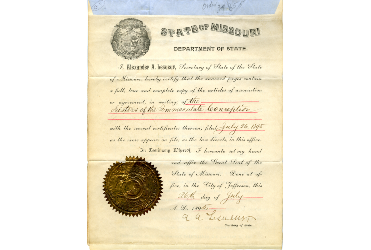 STATE OF MISSOURI
DEPARTMENT OF STATE.
I, Alexander A. Lesueur, Secretary of State of the State
of Missouri, hereby certify that the annexed pages contain
a full, true and complete copy of the articles of association
or agreement, in writing, of the
Sisters of the Immaculate Conception
with the several certificates thereon, filed July 26, 1895
as the same appears on file, as the law directs, in this office.
In Testimony Whereof, I hereunto set my hand
and affix the Great Seal of the
State of Missouri. Done at of-
fice in the City of Jefferson, this
26th day of July
A.D. 1895
A. A. Lesueur
Secretary of State.